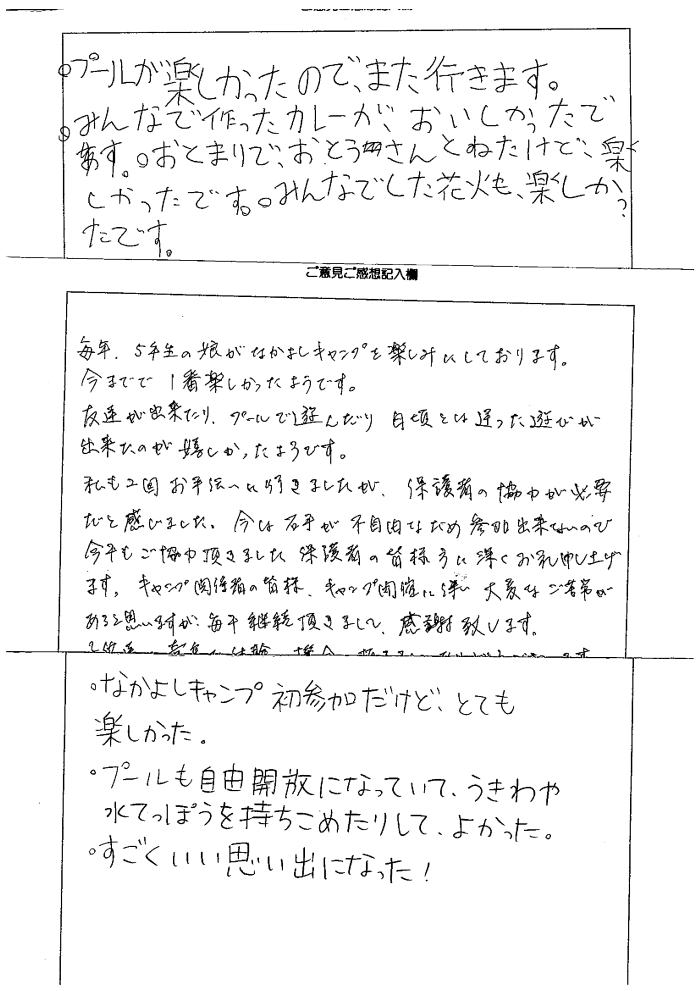 ○プールが楽しかったので、また行きます。
○みんなで作ったカレーが、おいしかったで
す。○おとまりで、おとうさんとねたけど、楽
しかったです。○みんなでした花火も、楽しか
たです。
ご意見ご感想記入欄
毎年、5年生の娘がなかよしキャンプを楽しみにしております。
今までで1番楽しかったようです。
友達が出来たり、プールで遊んだり 日頃とは違った遊びが
出来たのが嬉しかったようです。
私も2回お手伝いに行きましたが、保護者の協力が必要
だと感じました。今は右手が不自由なため参加出来ないので
今年もご協力頂きました保護者の皆様方に深くお礼申し上げ
ます。キャンプ関係者の皆様、キャンプ開催に伴い大変なご苦労が
あると思いますが、毎年継続頂きまして、感謝致します。
○なかよしキャンプ初参加だけど、とても
楽しかった。
○プールも自由開放になっていて、うきわや
水てっぽうを持ちこめたりして、よかった。
○すごくいい思い出になった!